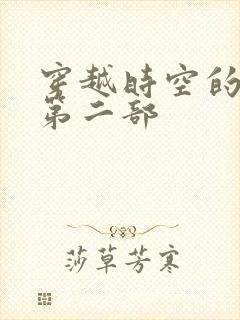 穿越時空的
第二部
莎草芳寒